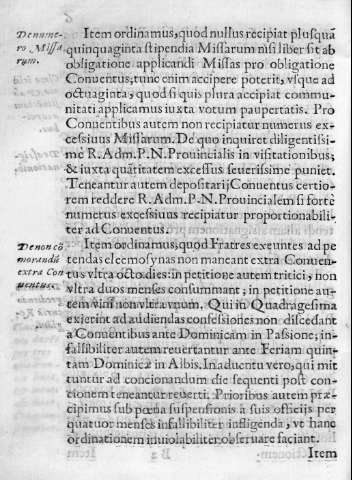 De nume-
ro Missa-
rum.
Item ordinamus, quod nullus recipiat plusquā
quinquaginta stipendia Missarum nisi liber sit ab
obligatione applicandi Missas pro obligatione
Conuentus; tunc enim accipere poterit, vsque ad
octuaginta, quod si quis plura accipiat commu-
nitati applicamus iuxta votum paupertatis. Pro
Conuentibus autem non recipiatur numerus ex-
cessiuus Missarum. De quo inquiret diligentissi-
mè R. Adm. P. N. Prouincialis in visitationibus;
& iuxta quātitatem excessus seuerissime puniet.
Teneantur autem depositarij Conuentus certio-
rem reddere R. Adm. P. N. Prouincialem si forte
numerus excessiuus recipiatur proportionabili-
ter ad Conuentus.
De non cō
morandis
extra Con
uentus.
Item ordinamus, quod Fratres exeuntes ad pe
tendas eleemosynas non maneant extra Conuen-
tus vltra octo dies: in petitione autem tritici, non
vltra duos menses consummant; in petitione au-
tem vini non vltra vnum. Qui in Quadragesima
exierint ad audiendas confessiones non discedant
a Conuentibus ante Dominicam in Passione; in-
fallibiliter autem reuertantur ante Feriam quin-
tam Dominicæ in Albis. In aduentu vero, qui mit
tuntur ad concionandum die sequenti post con-
cionem teneantur reuerti. Prioribus autem præ-
cipimus sub pœna suspensionis à suis officijs per
quatuor menses infallibiliter infligenda, vt hanc
ordinationem inuiolabiliter obseruare faciant.
Item